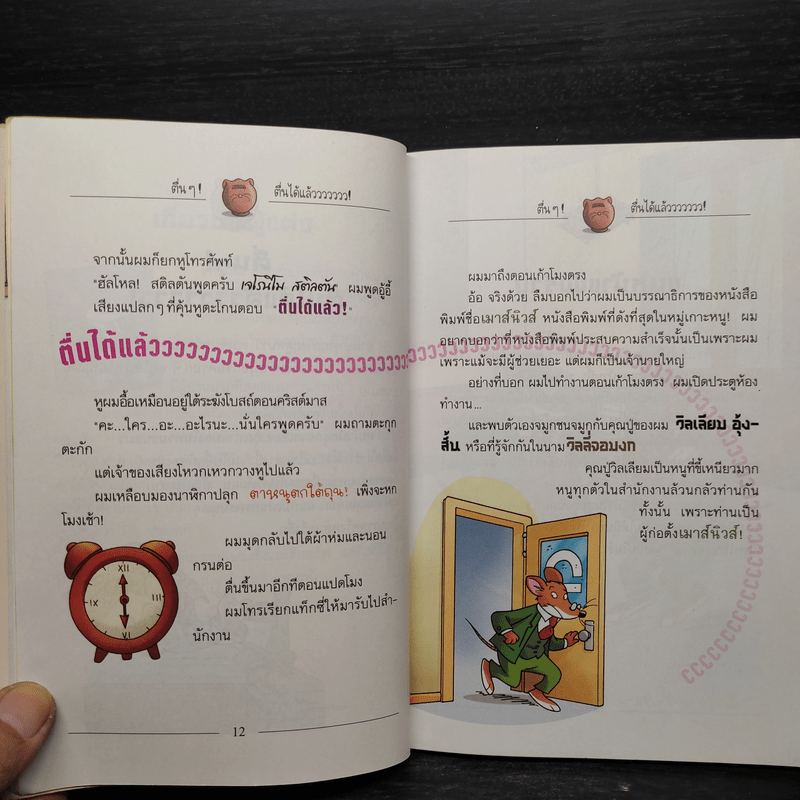 ตื่นๆ! ตื่นได้แล้วววววววว!
จากนั้นผมก็ยกหูโทรศัพท์
"ฮัลโหล! สติลตันพูดครับ เจโรนิโม สติลตัน" ผมพูดอู้อี้
เสียงแปลกๆ ที่คุ้นหูตะโกนตอบ "ตื่นได้แล้ว!"
ตื่นได้แล้ววววววววววววววววววววววววววววววววววววววววววววววววววววววว
หูผมอื้อเหมือนอยู่ใต้ระฆังโบสถ์ตอนคริสต์มาส
"คะ...ใคร...อะ...อะไรนะ...นั่นใครพูดครับ" ผมถามตะกุก
ตะกัก
แต่เจ้าของเสียงโหวกเหวกวางหูไปแล้ว
ผมเหลือบมองนาฬิกาปลุก ตาหนูตกใต้ถุน! เพิ่งจะหก
โมงเช้า!
ผมมุดกลับไปใต้ผ้าห่มและนอน
กรนต่อ
ตื่นขึ้นมาอีกทีตอนแปดโมง
ผมโทรเรียกแท็กซี่ให้มารับไปสำ-
นักงาน
XII
IX
III
VI
12
ตื่นๆ! ตื่นได้แล้วววววววว!
ผมมาถึงตอนเก้าโมงตรง
อ้อ จริงด้วย ลืมบอกไปว่าผมเป็นบรรณาธิการของหนังสือ
พิมพ์ชื่อเมาส์นิวส์ หนังสือพิมพ์ที่ดังที่สุดในหมู่เกาะหนู! ผม
อยากบอกว่าที่หนังสือพิมพ์ประสบความสำเร็จนั้นเป็นเพราะผม
เพราะแม้จะมีผู้ช่วยเยอะ แต่ผมก็เป็นเจ้านายใหญ่
อย่างที่บอก ผมไปทำงานตอนเก้าโมงตรง ผมเปิดประตูห้อง
ทำงาน...
และพบตัวเองจมูกชนจมูกกับคุณปู่ของผม วิลเลียม อุ้ง-
สั้น หรือที่รู้จักกันในนามวิลลี่จอมงก
คุณปู่วิลเลียมเป็นหนูที่ขี้เหนียวมาก
หนูทุกตัวในสำนักงานล้วนกลัวท่านกัน
ทั้งนั้น เพราะท่านเป็น
ผู้ก่อตั้งเมาส์นิวส์!